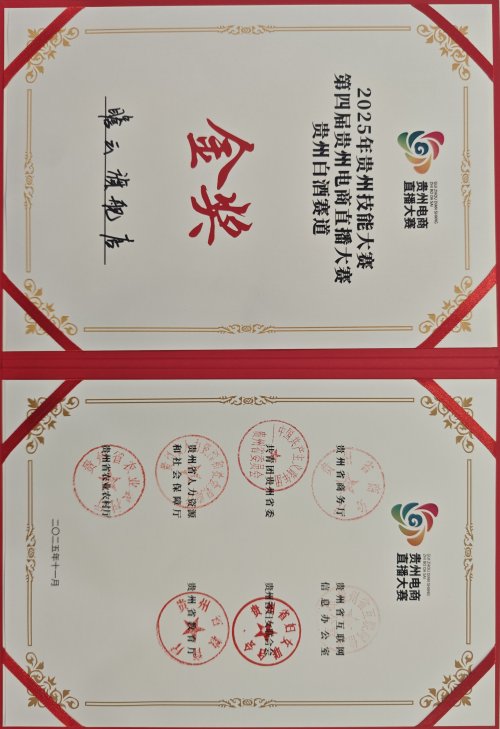 GUI ZHOU DIAN SHANG
ZHI BO DA SAI
贵州电商
直播大赛
2025年贵州技能大赛
第四届贵州电商直播大赛
贵州白酒赛道
金奖
旗舰店
GUI ZHOU DIAN SHANG
ZHI BO DA SAI
贵州电商
直播大赛
贵州省商务厅
贵州省互联网
信息办公室
共青团贵州省委
贵州省妇女联合会
贵州省人力资源
和社会保障厅
贵州省教育厅
贵州省农业农村厅
二〇二五年十一月